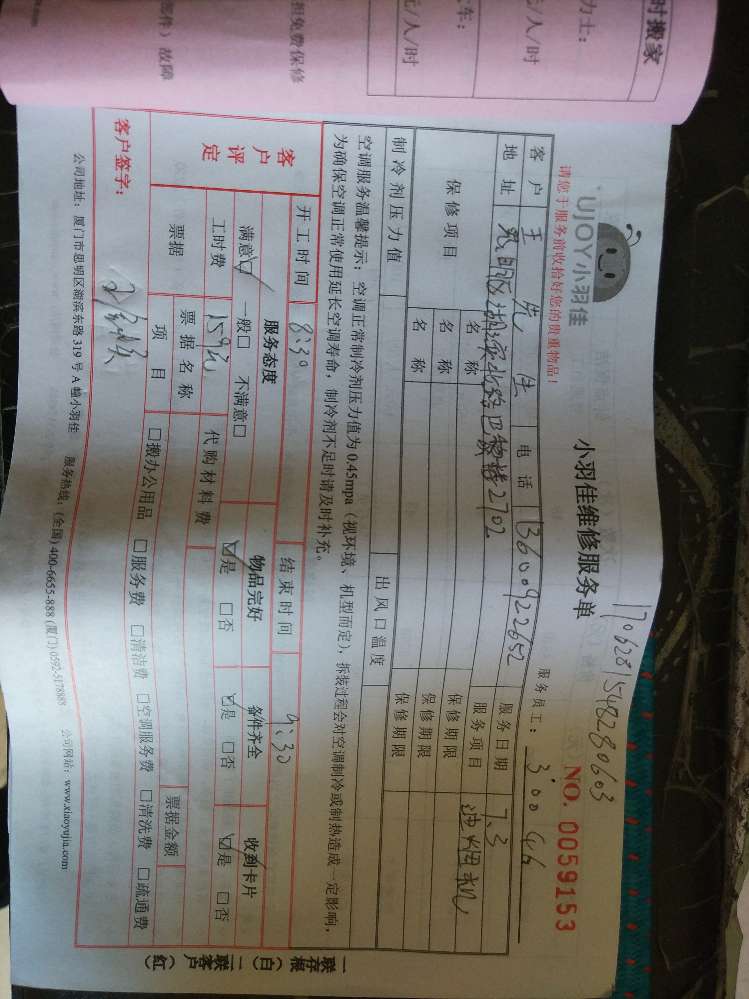 时搬家
力士：
元/人/时
元/人/时
担免费保修
部件）故障
1706281548280603
UJOY小羽佳
小羽佳维修服务单
NO. 0059153
请您于服务前收拾好您的贵重物品！
服务员工：
客户 王先生 电话 13600922652 服务日期 7.3
地址 思明区湖滨北路巴黎春2702 服务项目
保修项目 名称 保修期限
名称 保修期限
名称 保修期限
制冷剂压力值 出风口温度
空调服务温馨提示：空调正常制冷剂压力值为0.45mpa（视环境、机型而定），拆装过程会对空调制冷或制热造成一定影响，
为确保空调正常使用延长空调寿命，制冷剂不足时请及时补充。
客户评定
开工时间 8:30 结束时间 9:30
服务态度 物品完好 备件齐全 收到卡片
满意☑ 一般□ 不满意□ ☑是 □否 ☑是 □否 ☑是 □否
工时费 159元 代购材料费
票据 票据名称 票据金额
项目 □搬办公用品 □服务费 □清洁费 □空调服务费 □清洗费 □疏通费
客户签字：
公司地址：厦门市思明区湖滨东路319号A幢小羽佳 服务热线：(全国) 400-6655-888 (厦门) 0592-5178888 公司网站：www.xiaoyujia.com
一联存根（白） 二联客户（红）